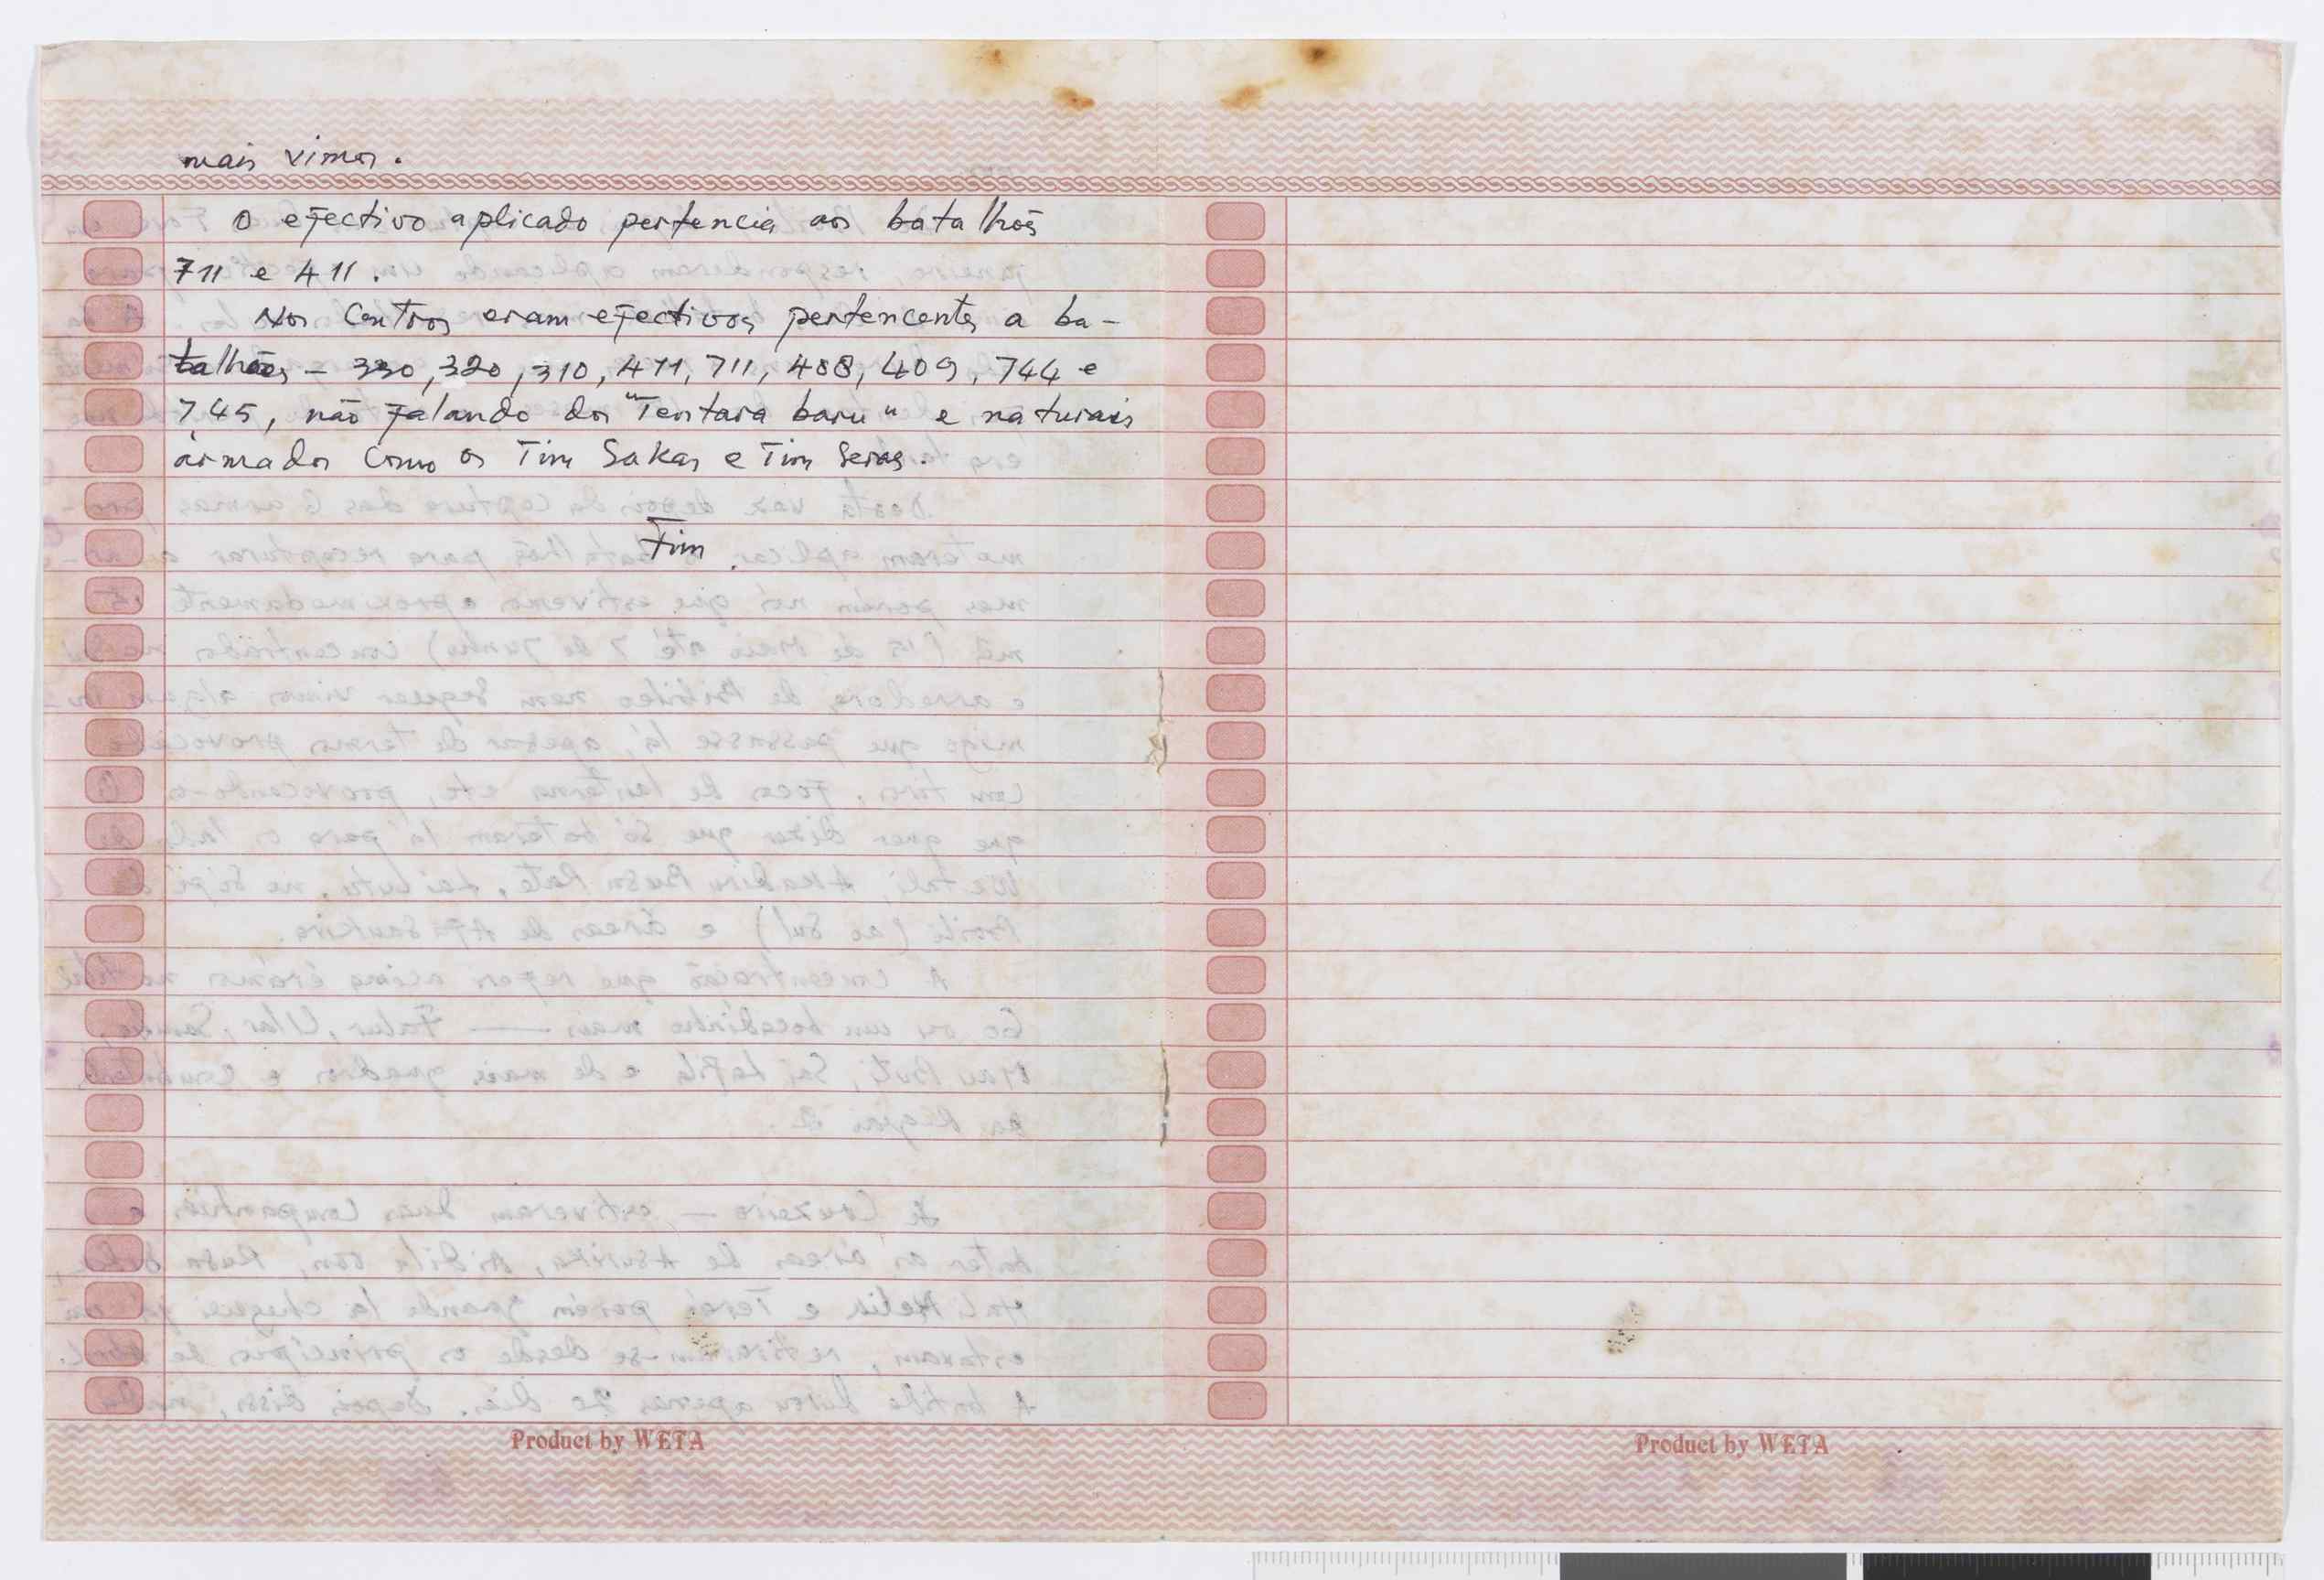 mais vimos.
O efectivo aplicado pertencia aos batalhões
711 e 411.
Nos Centros eram efectivos pertencentes a ba-
talhões - 330, 320, 310, 411, 711, 408, 409, 744 e
745, não falando dos "Tentara baru" e naturais
armados como os Tim Sakas e Tim Seras.
Fim.
Product by WETA
Product by WETA